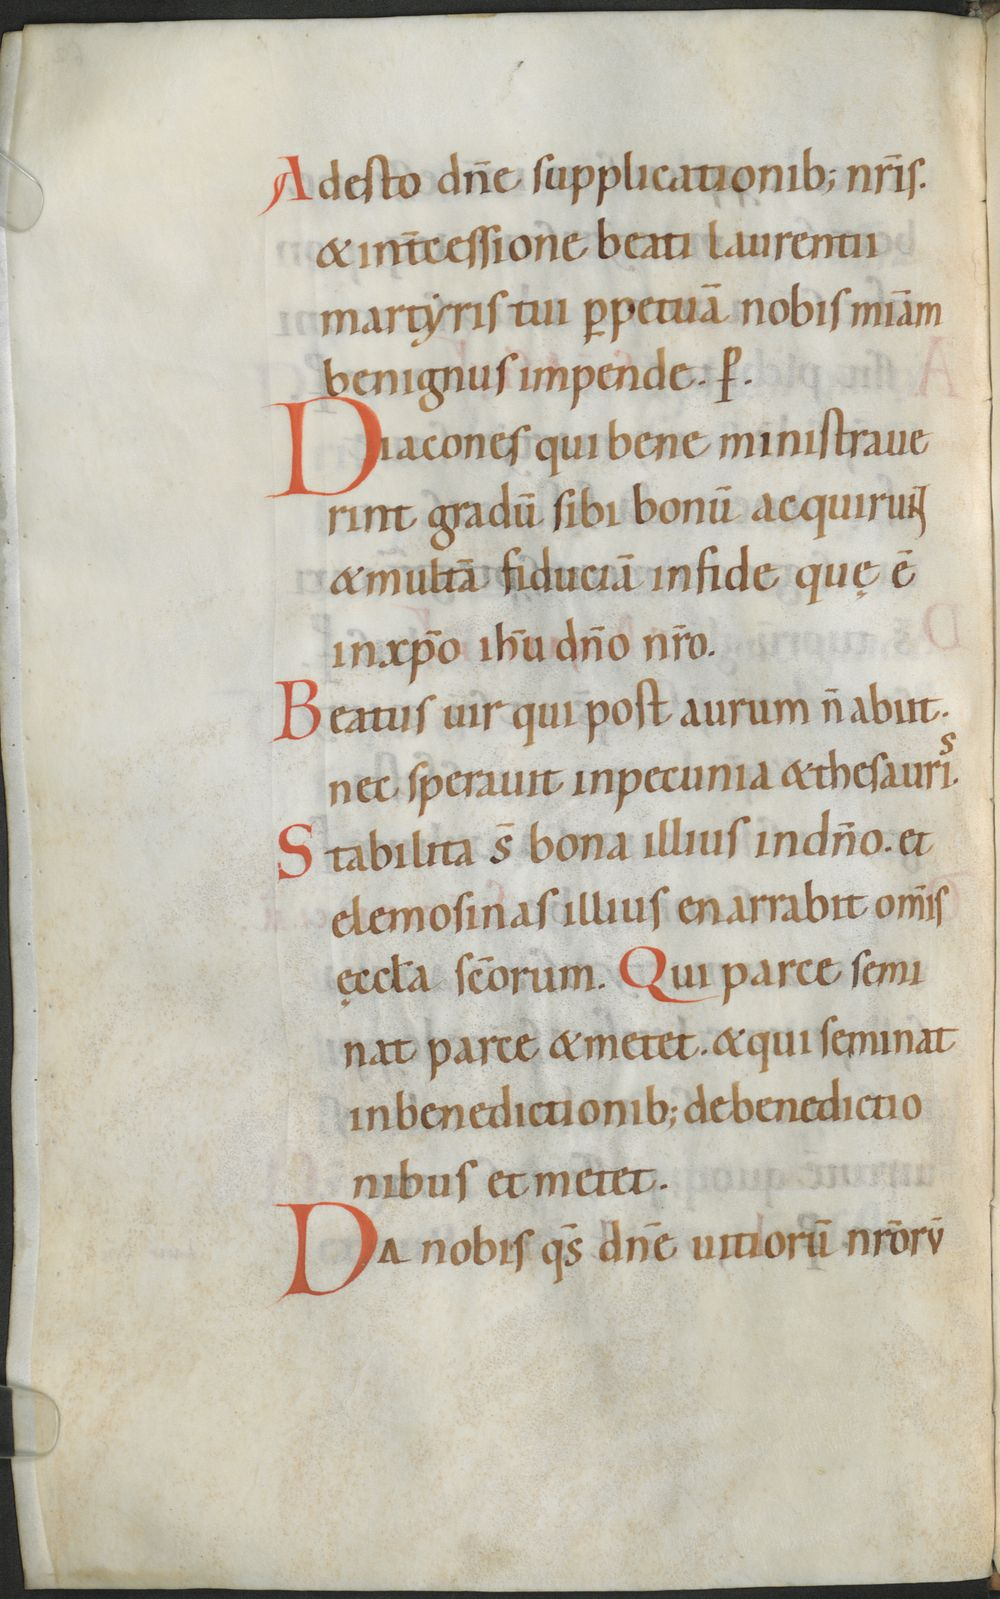 Adesto dn̄e supplicationib; nr̄is.
& int̄cessione beati laurentii
martyris tui ꝑpetuā nobis miām
benignus impende. ꝑ.
Diacones qui bene ministraue
rint gradū sibi bonū acquirunt
& multā fiduciā in fide quę ē
in xp̄o ih̄u dn̄o nr̄o.
Beatus uir qui post aurum n̄ abiit.
nec sperauit in pecunia & thesauris.
Stabilita s̄ bona illius in dn̄o. et
elemosinas illius enarrabit om̄is
ęccl̄a sc̄orum. Qui parce semi
nat parce & metet. & qui seminat
in benedictionib; de benedictio
nibus et metet.
Da nobis qs̄ dn̄e uitiorū nr̄orū